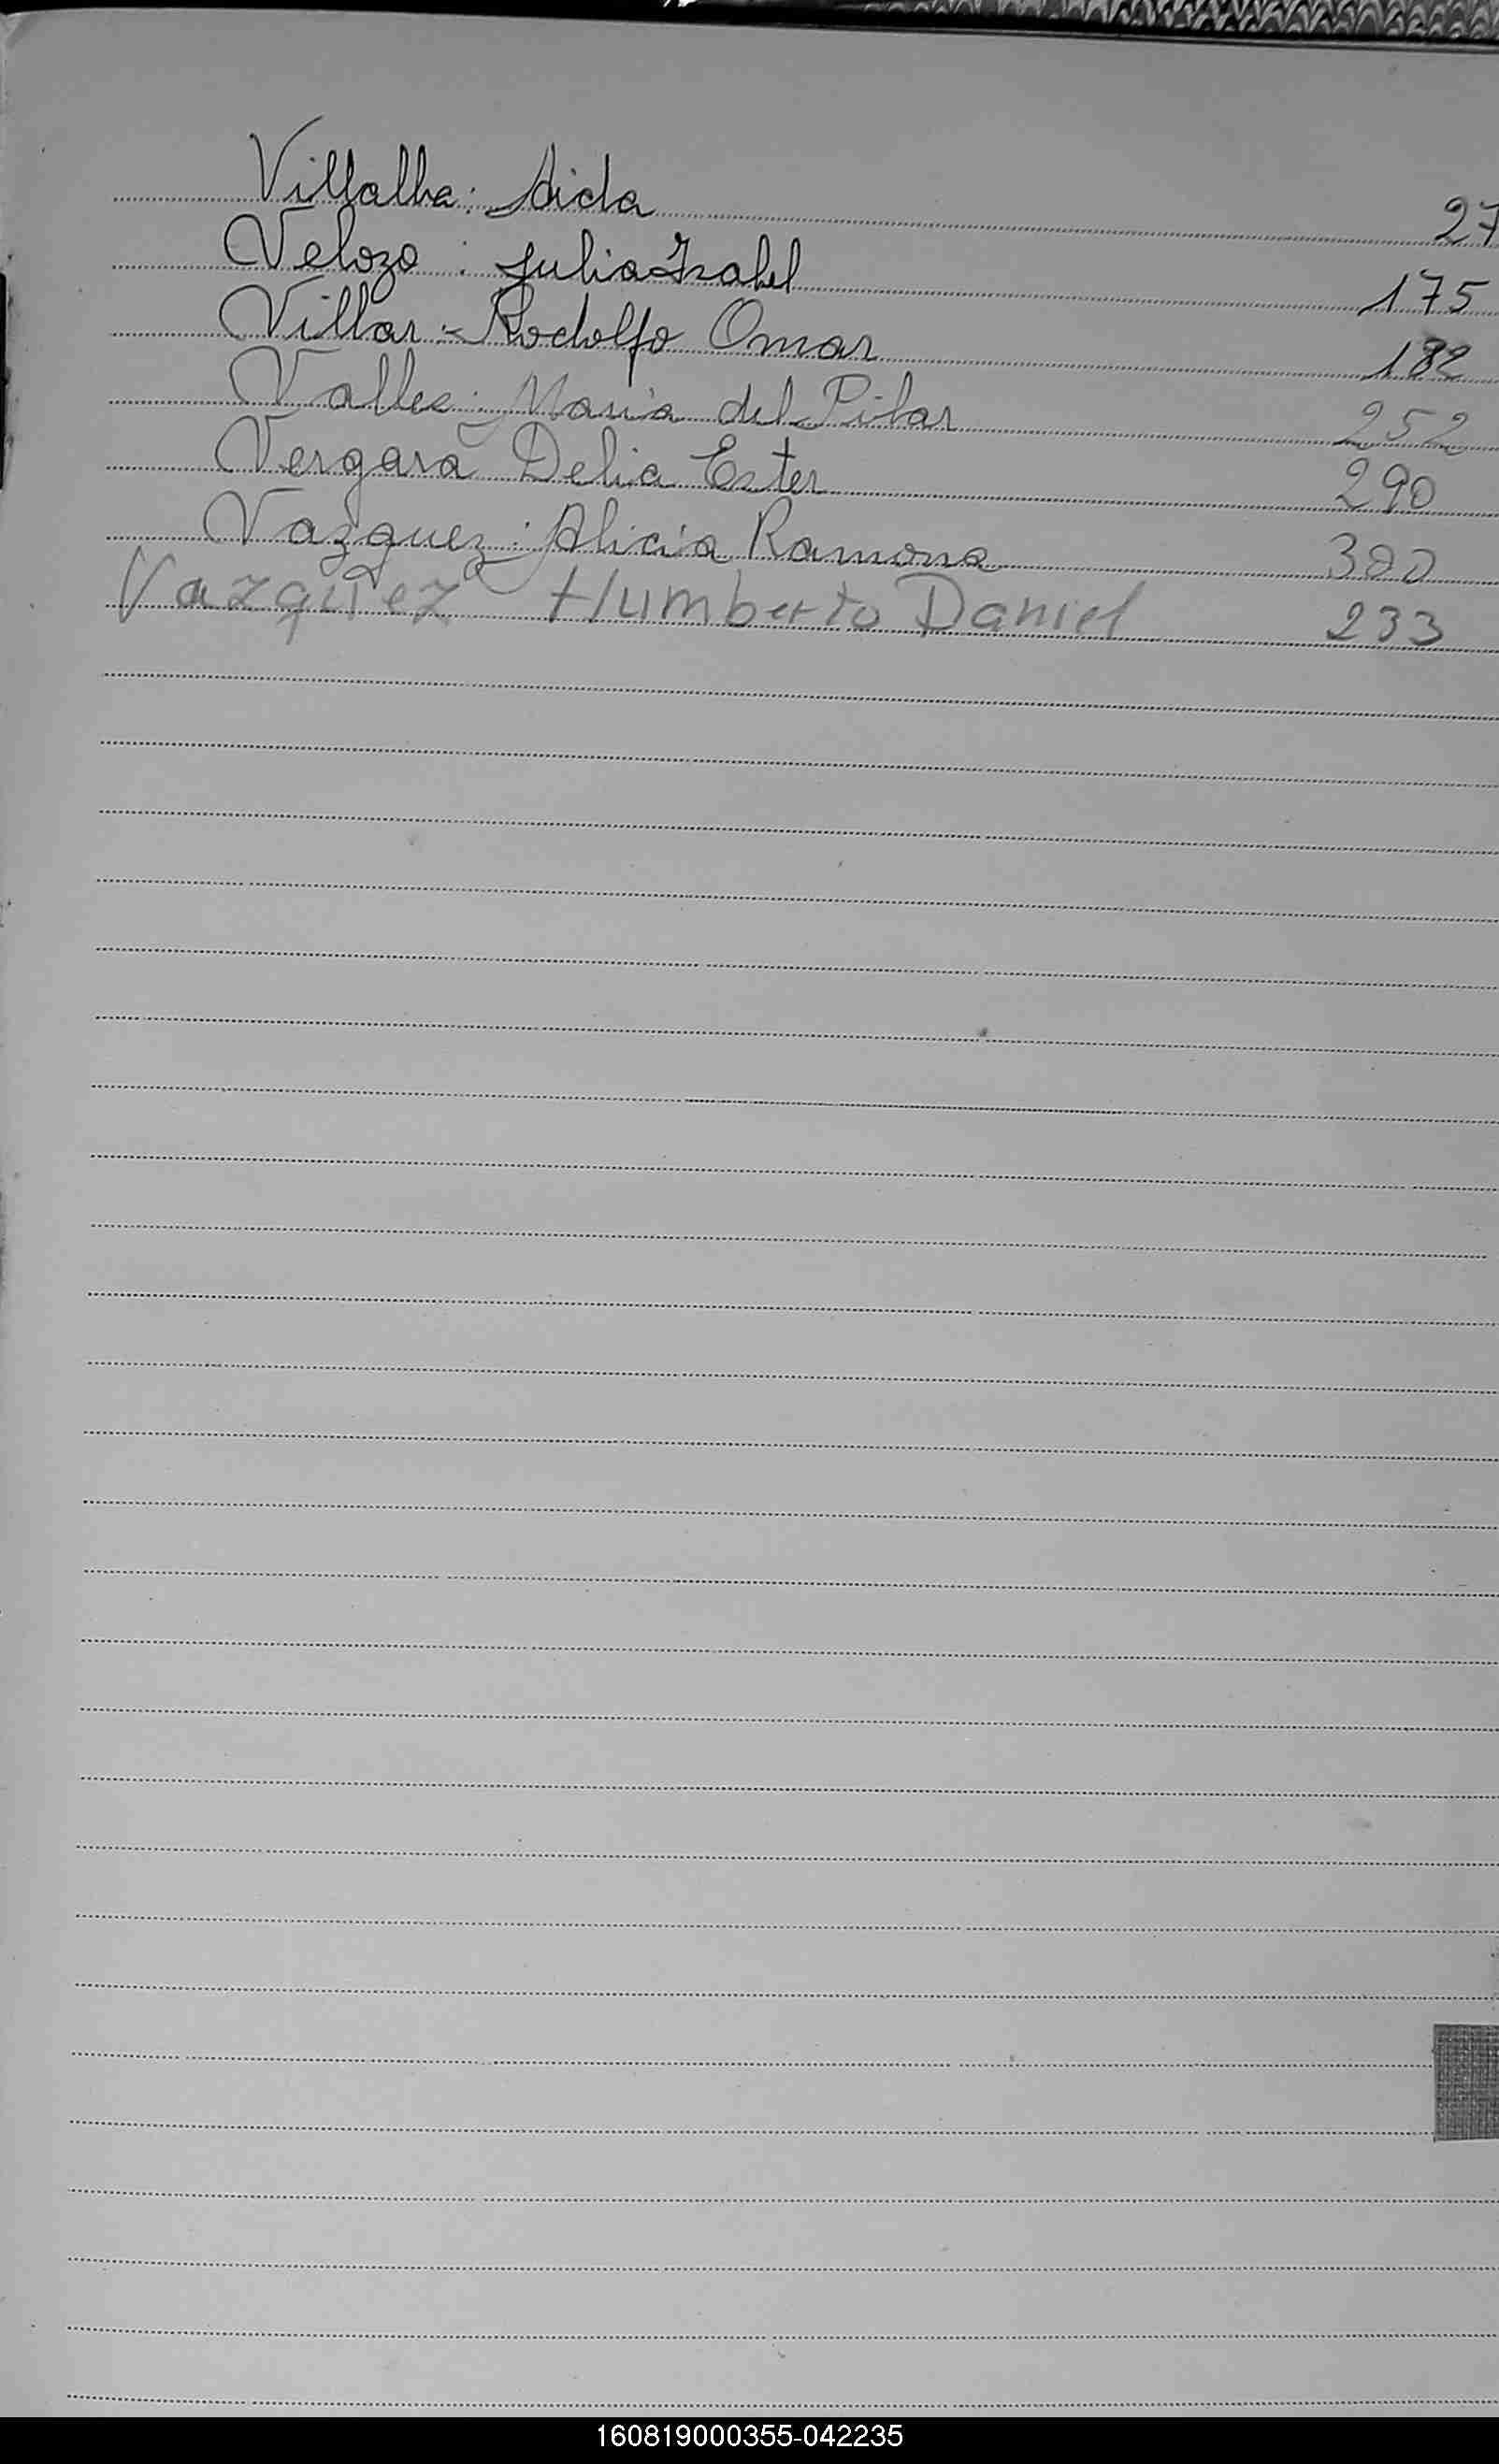 Villalba: Aida 27
Velozo: Julia Izabel 175
Villar - Rodolfo Omar 182
Valles: Maria del Pilar 252
Vergara Delia Ester 290
Vazquez: Alicia Ramona 300
Vazquez Humberto Daniel 233
160819000355-042235